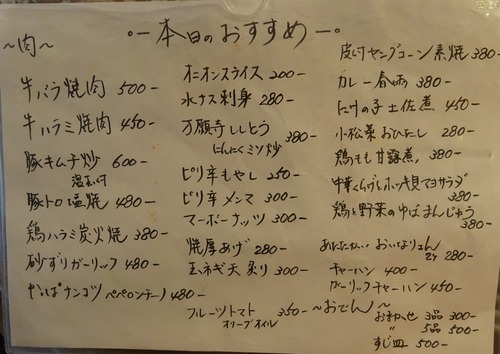 ・ー本日のおすすめー・
〜肉〜
牛バラ焼肉 500-
牛ハラミ焼肉 450-
豚キムチ炒 600-
温玉のせ
豚トロ塩焼 480-
鶏ハラミ炭火焼 380-
砂ずりガーリック 480-
やっぱナンコツ ペペロンチーノ 480-
オニオンスライス 200-
水ナス刺身 280-
万願寺ししとう 380-
にんにくミソ炒
ピリ辛もやし 250-
ピリ辛メンマ 300-
マーボーナッツ 300-
焼厚あげ 280-
玉ネギ天 炙り 300-
フルーツトマト 350-
オリーブオイル
皮付ヤングコーン素焼 380-
カレー春雨 380-
竹の子土佐煮 450-
小松菜おひたし 280-
鶏もも甘露煮 380-
中華くらげとホッキ貝マヨサラダ 380-
鶏と野菜のゆばまんじゅう 380-
あたたかい おいなりさん 2ケ 280-
チャーハン 400-
ガーリックチャーハン 450-
〜おでん〜
おまかせ 3品 300-
〃 5品 500-
すじ皿 500-